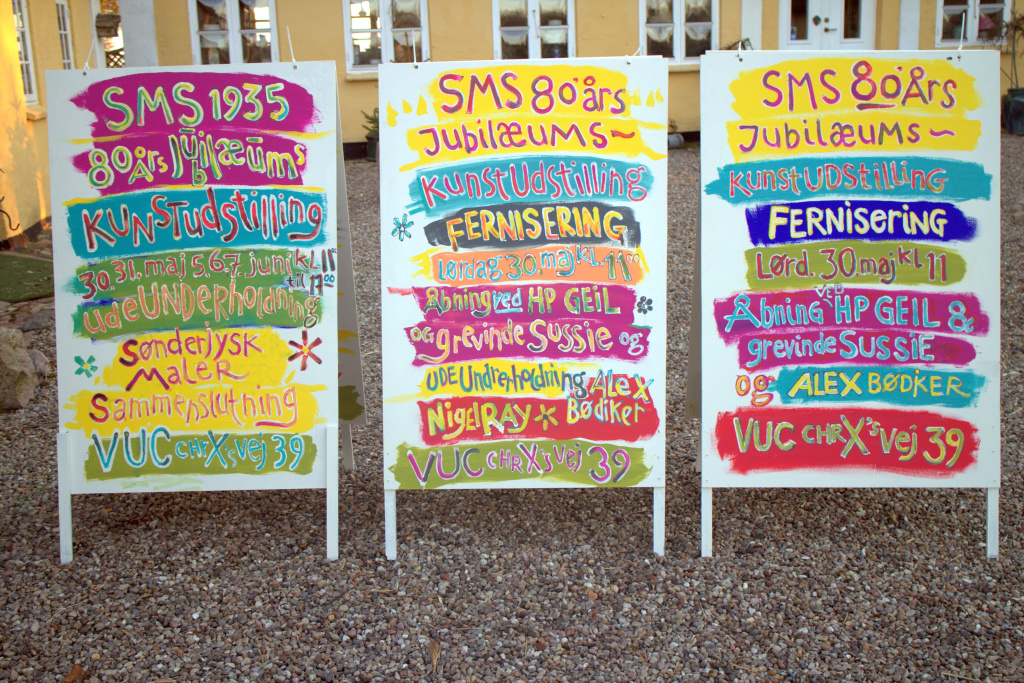 SMS 1935
80 års Jubilæums
KUNSTudstilling
30. 31. maj 5. 6. 7. juni kl 11⁰⁰
til 17⁰⁰
ude UNDERholdning
Sønderjysk
MALER
Sammenslutning
VUC CHR X's vej 39
SMS 80 års
Jubilæums~
KunstUdstilling
FERNISERING
Lørdag 30. maj kl. 11⁰⁰
Åbning ved HP GEIL
og grevinde Sussie og
UDE Undrerholdning Alex
NigelRAY Bødiker
VUC CHR X's vej 39
SMS 80 Års
Jubilæums~
KUNSTUDSTILLING
FERNISERING
Lørd. 30. maj kl 11
Åbning VED HP GEIL &
grevinde SUSSIE
og ALEX BØDKER
VUC CHR X's vej 39